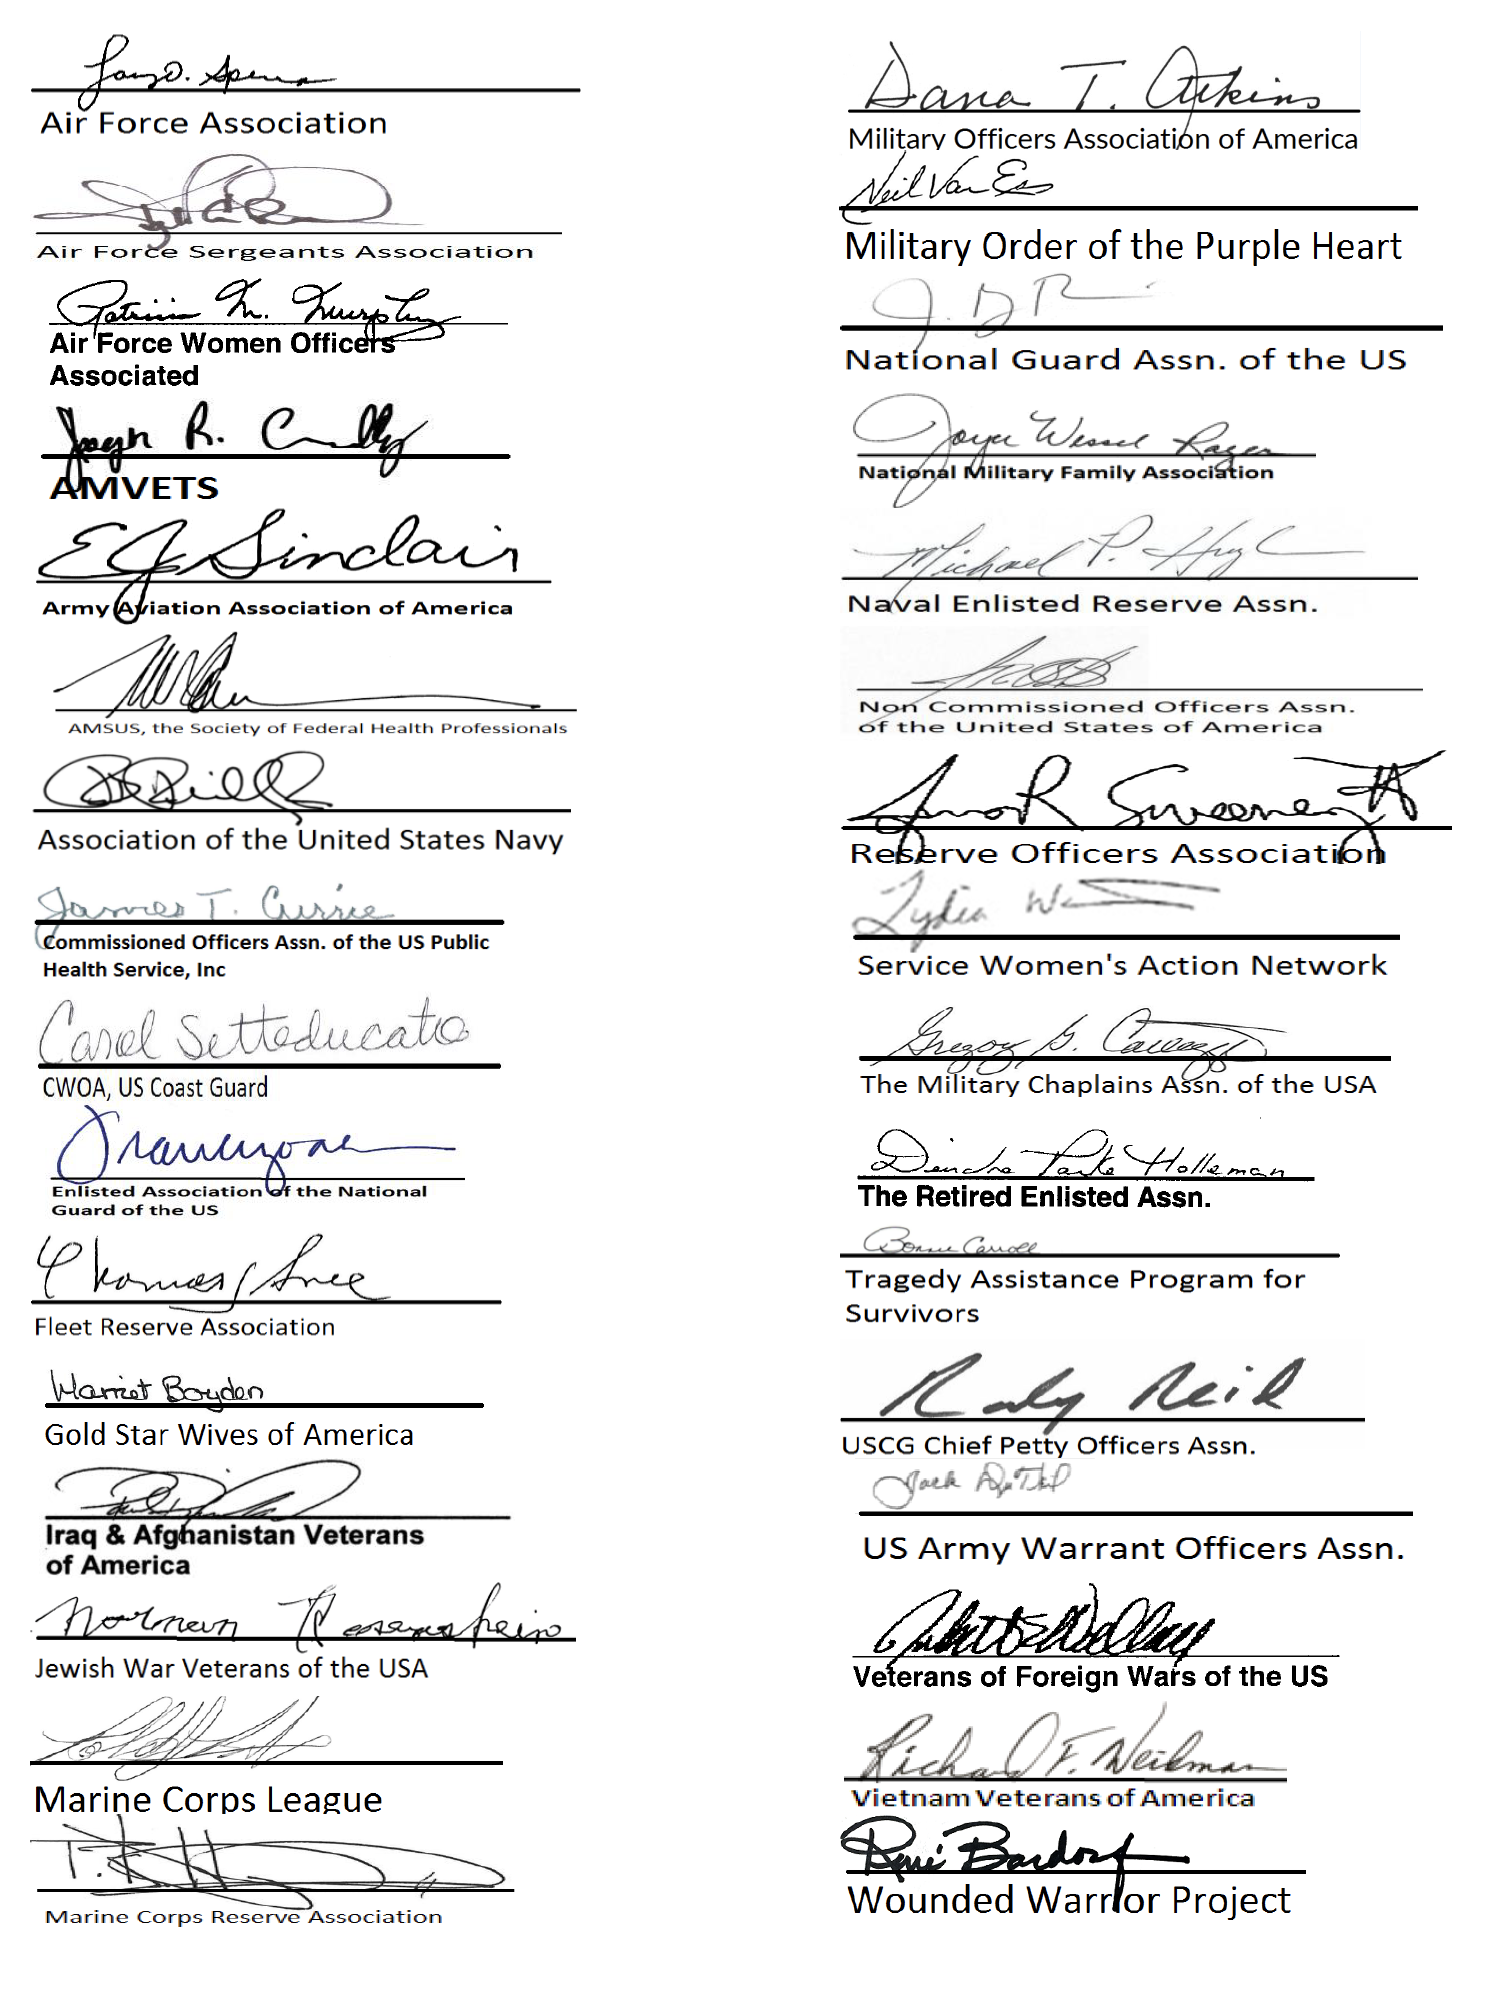 Larry O. Spencer
Air Force Association
Air Force Sergeants Association
Patricia M. Murphy
Air Force Women Officers
Associated
Joseph R. Chenelly
AMVETS
EJ Sinclair
Army Aviation Association of America
AMSUS, the Society of Federal Health Professionals
Association of the United States Navy
James T. Currie
Commissioned Officers Assn. of the US Public
Health Service, Inc
Carol Setteducato
CWOA, US Coast Guard
Enlisted Association of the National
Guard of the US
Thomas J Snee
Fleet Reserve Association
Harriet Boyden
Gold Star Wives of America
Iraq & Afghanistan Veterans
of America
Norman Rosenshein
Jewish War Veterans of the USA
Marine Corps League
Marine Corps Reserve Association
Dana T. Atkins
Military Officers Association of America
Neil Van Ess
Military Order of the Purple Heart
National Guard Assn. of the US
Joyce Wessel Raezer
National Military Family Association
Michael P.
Naval Enlisted Reserve Assn.
Non Commissioned Officers Assn.
of the United States of America
Sweeney
Reserve Officers Association
Lydia
Service Women's Action Network
Gregory G. Caiazzo
The Military Chaplains Assn. of the USA
Deirdre Parke Holleman
The Retired Enlisted Assn.
Bonnie Carroll
Tragedy Assistance Program for
Survivors
Randy Reid
USCG Chief Petty Officers Assn.
Jack Du Teil
US Army Warrant Officers Assn.
Veterans of Foreign Wars of the US
Richard F. Weidman
Vietnam Veterans of America
René Bardorf
Wounded Warrior Project